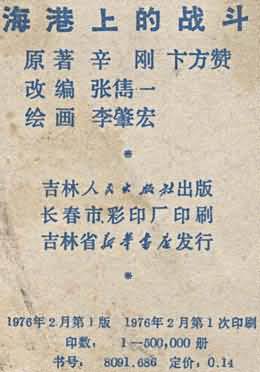 海港上的战斗
原著 辛 刚 卞方赞
改编 张儁一
绘画 李肇宏
*
吉林人民出版社出版
长春市彩印厂印刷
吉林省新华书店发行
*
1976年2月第1版 1976年2月第1次印刷
印数： 1—500,000 册
书号： 8091.686 定价：0.14